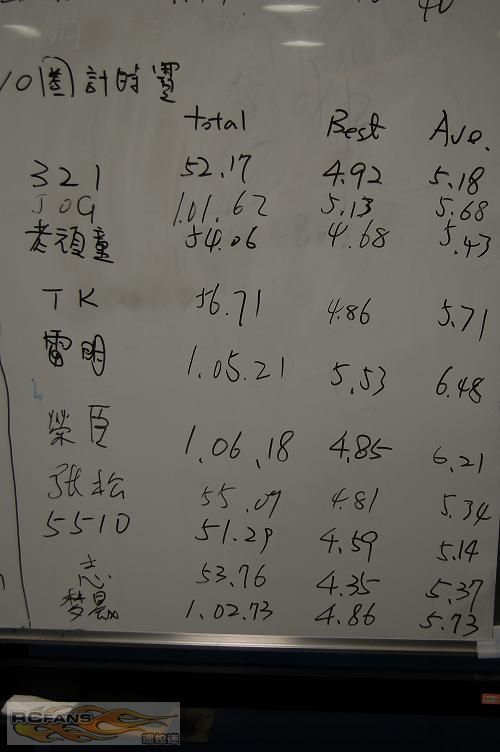 40
10圈計時賽
total Best Ave.
321 52.17 4.92 5.18
JOG 1.01.62 5.13 5.68
老頑童 54.06 4.68 5.43
TK 56.71 4.86 5.71
雷明 1.05.21 5.53 6.48
榮臣 1.06.18 4.85 6.21
張松 55.09 4.81 5.34
5510 51.29 4.59 5.14
志 53.76 4.35 5.37
梦晨 1.02.73 4.86 5.73
RCFANS